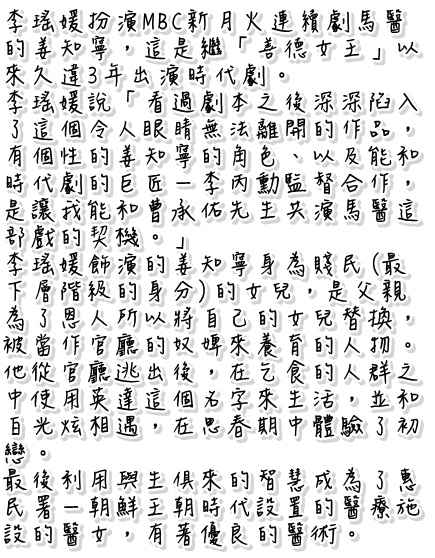 李瑤媛扮演MBC新月火連續劇馬醫
的姜知寧，這是繼「善德女王」以
來久違3年出演時代劇。
李瑤媛說「看過劇本之後深深陷入
了這個令人眼睛無法離開的作品，
有個性的姜知寧的角色、以及能和
時代劇的巨匠－李丙勳監督合作，
是讓我能和曹承佑先生共演馬醫這
部戲的契機。」
李瑤媛飾演的姜知寧身為賤民(最
下層階級的身分)的女兒，是父親
為了恩人所以將自己的女兒替換，
被當作官廳的奴婢來養育的人物。
他從官廳逃出後，在乞食的人群之
中使用英達這個名字來生活，並和
百光炫相遇，在思春期中體驗了初
戀。
最後利用與生俱來的智慧成為了惠
民署－朝鮮王朝時代設置的醫療施
設的醫女，有著優良的醫術。